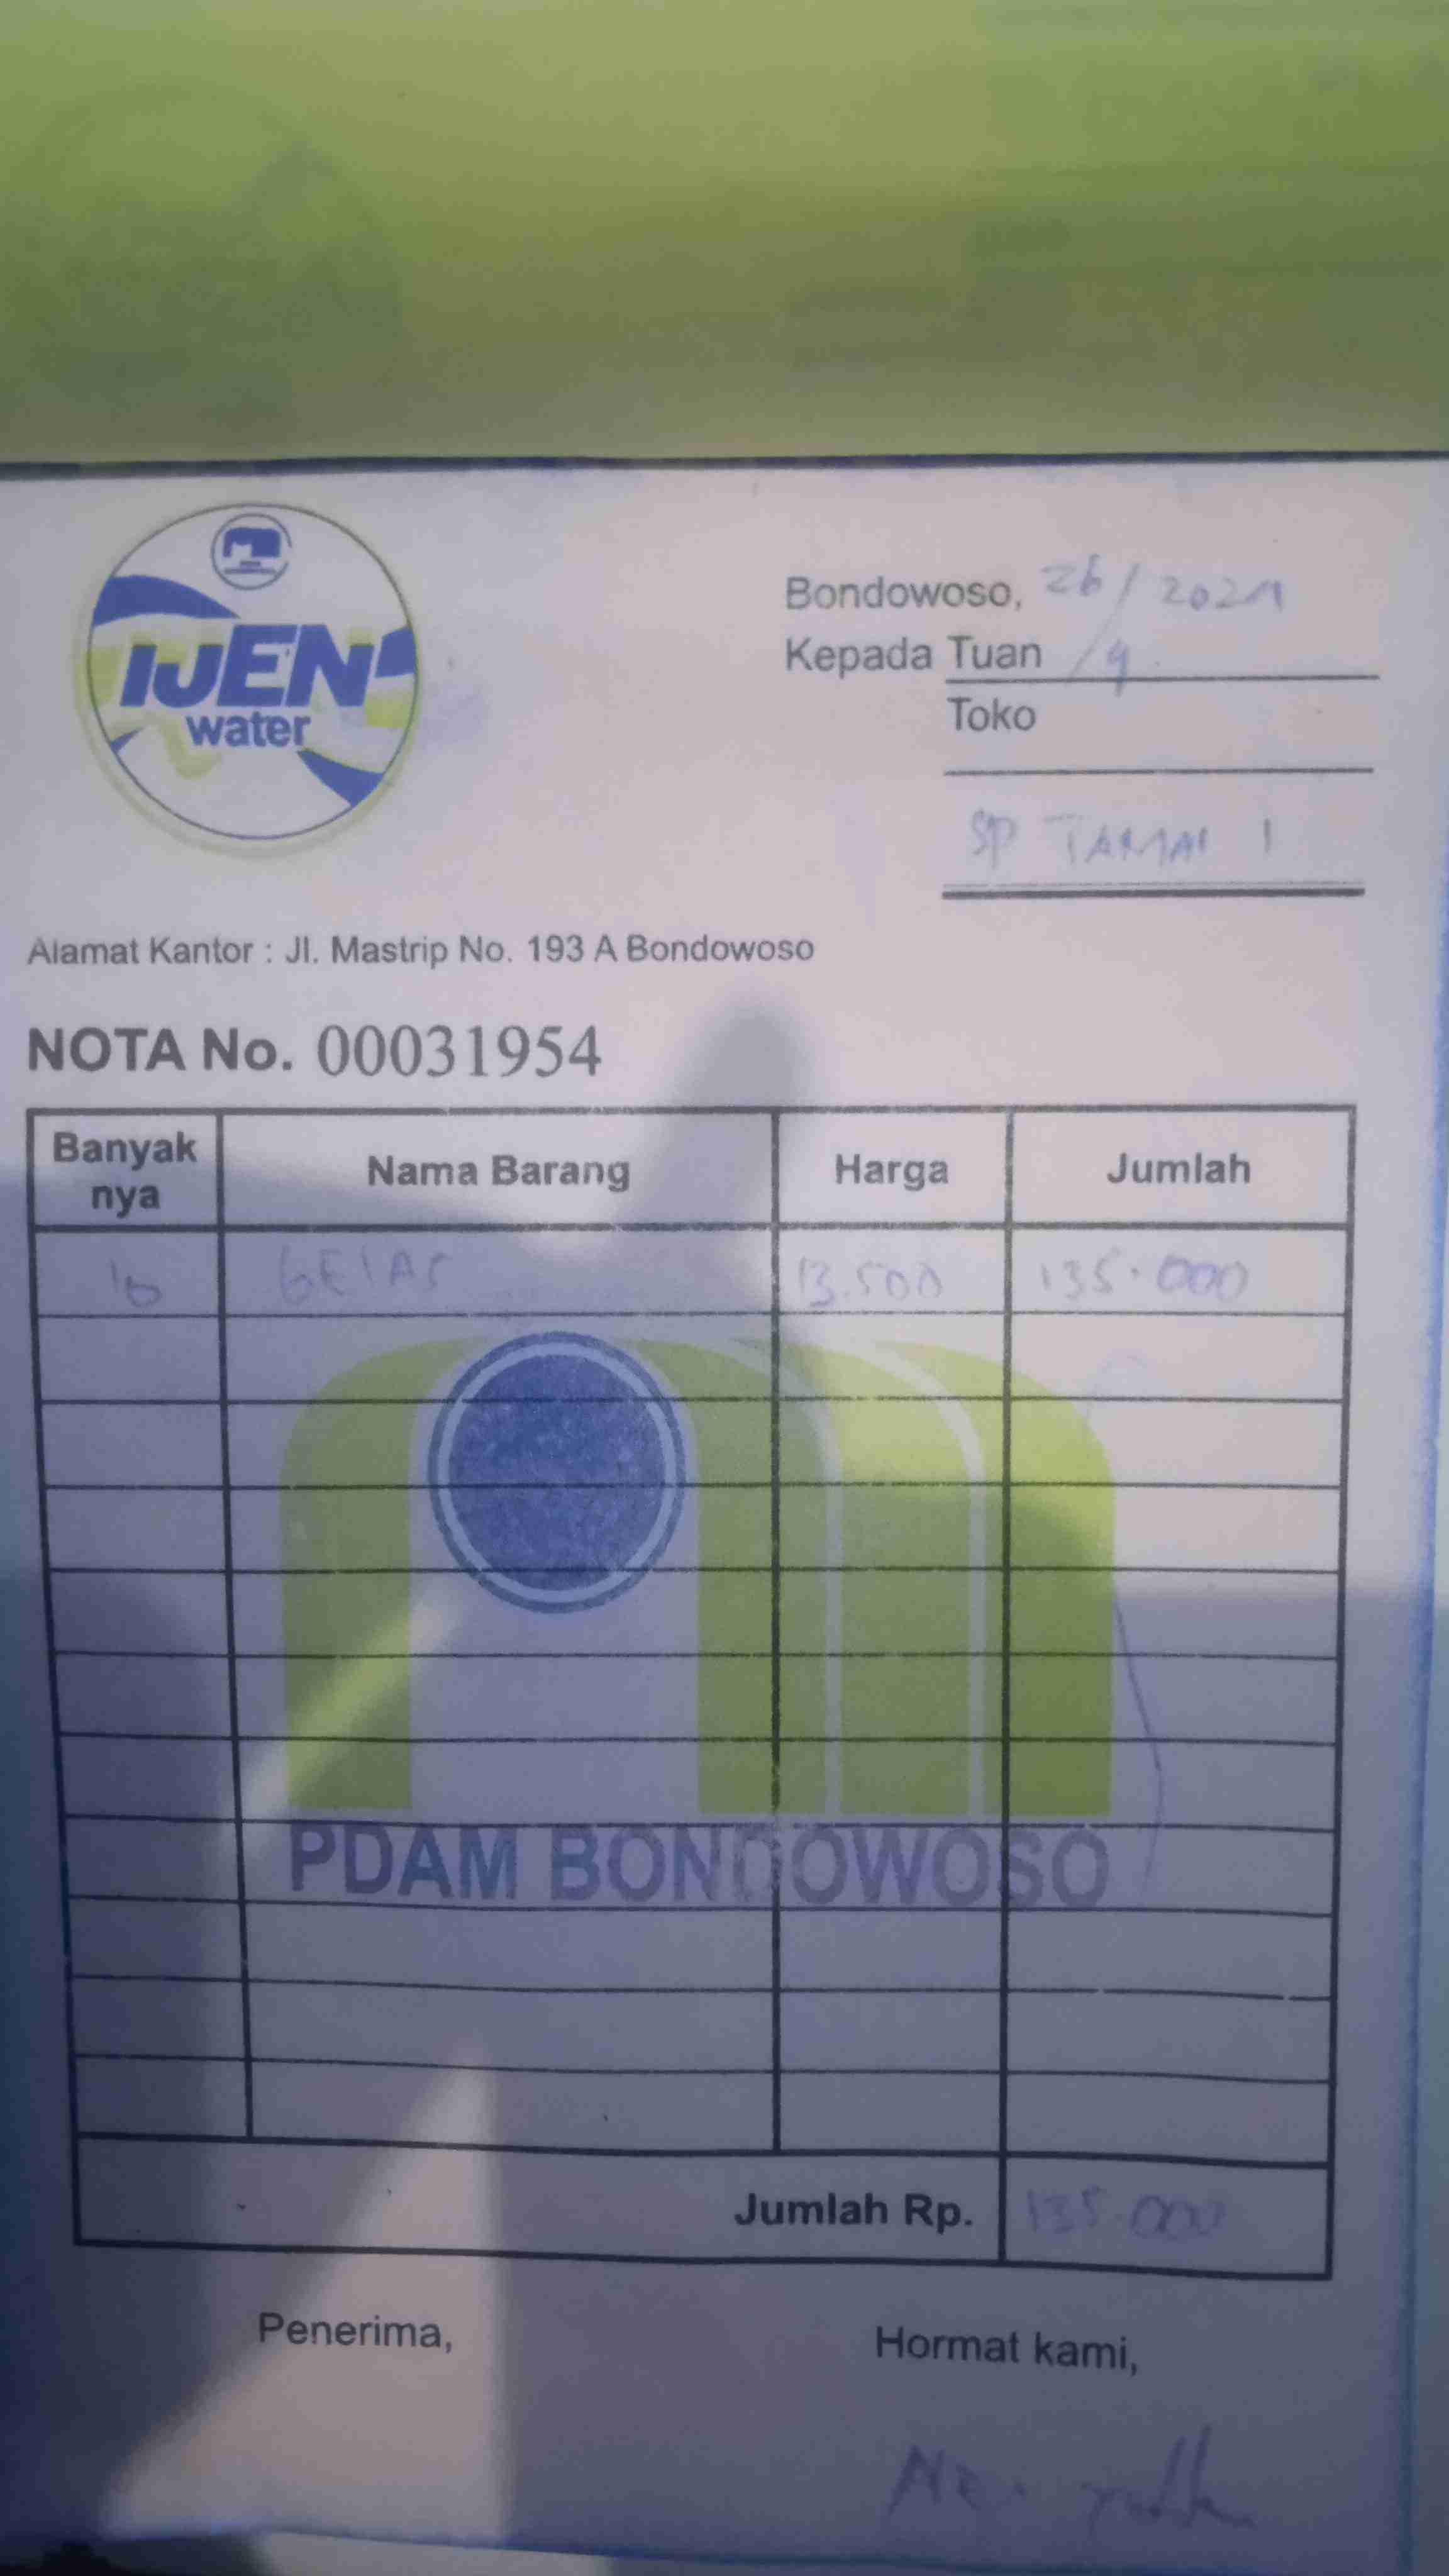 IJEN
water
Bondowoso, 26/9 2021
Kepada Tuan
Toko
SP TAMAN 1
Alamat Kantor : Jl. Mastrip No. 193 A Bondowoso
NOTA No. 00031954
Banyak nya Nama Barang Harga Jumlah
10 GELAS 13.500 135.000
PDAM BONDOWOSO
Jumlah Rp. 135.000
Penerima, Hormat kami,